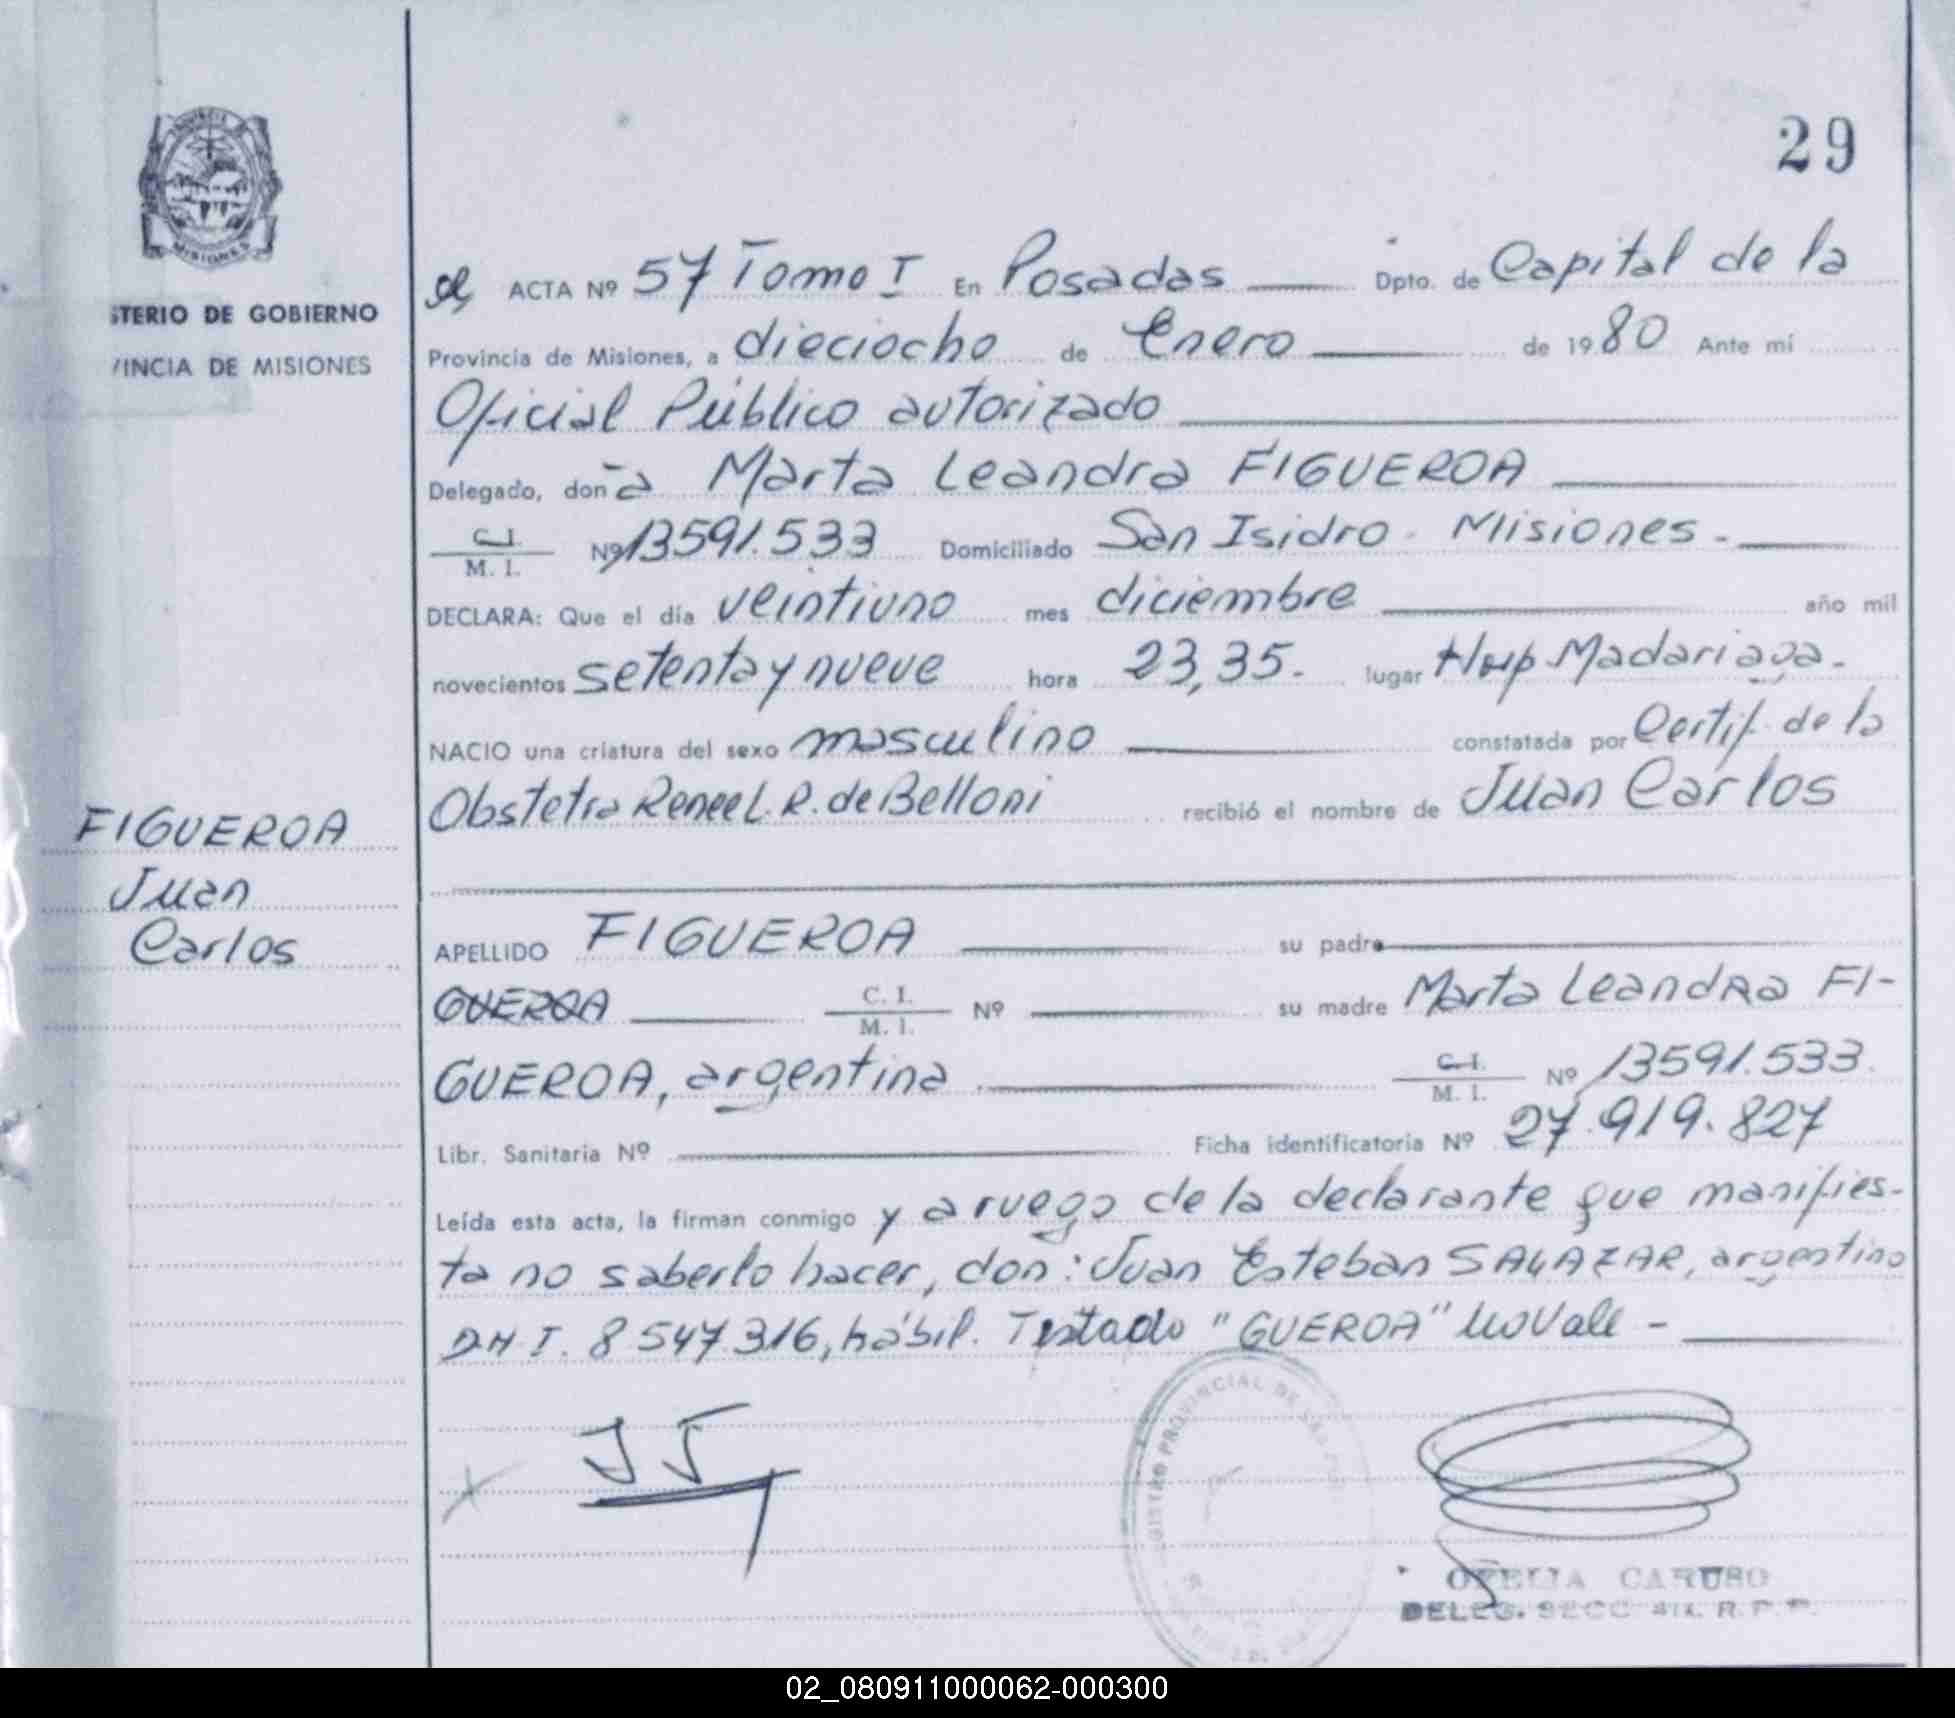 29
PROVINCIA DE
MISIONES
ISTERIO DE GOBIERNO
VINCIA DE MISIONES
ACTA Nº 57 Tomo I En Posadas Dpto. de Capital de la
Provincia de Misiones, a dieciocho de Enero de 1980 Ante mí
Oficial Público autorizado
Delegado, doña Marta Leandra FIGUEROA
C.I. M. I. Nº 13591.533 Domiciliado San Isidro - Misiones -
DECLARA: Que el día veintiuno mes diciembre año mil
novecientos setenta y nueve hora 23,35. lugar Hosp Madariaga -
NACIO una criatura del sexo masculino constatada por Certif. de la
Obstetra Renee L. R. de Belloni recibió el nombre de Juan Carlos
FIGUEROA
Juan
Carlos
APELLIDO FIGUEROA su padre
GUEROA C. I. M. I. Nº su madre Marta Leandra FI-
GUEROA, argentina C.I. M. I. Nº 13591.533.
Libr. Sanitaria Nº Ficha identificatoria Nº 27.919.827
Leída esta acta, la firman conmigo y a ruego de la declarante que manifies-
ta no saberlo hacer, don: Juan Esteban SALAZAR, argentino
D.N.I. 8 547.316, hábil. Testado "GUEROA" No Vale -
REGISTRO PROVINCIAL DE
OFELIA CARUSO
DELEG. SECC. 4ta. R. P. P.
02_080911000062-000300